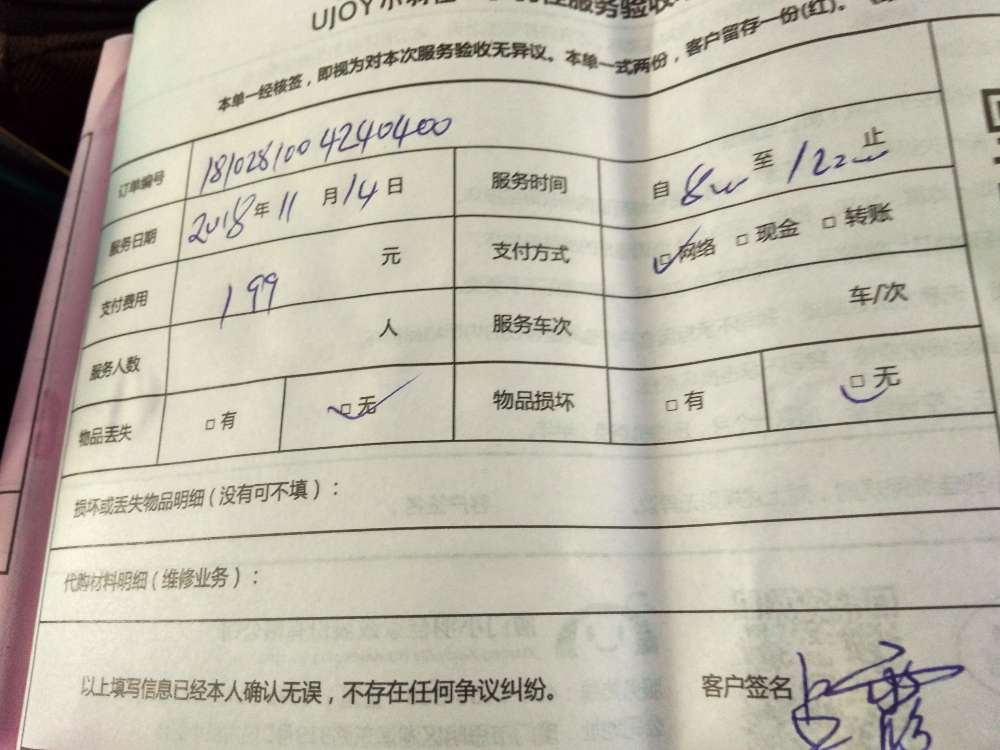 UJOY小羽佳 服务验收
本单一经核签，即视为对本次服务验收无异议。本单一式两份，客户留存一份(红)。
订单编号 181028100 4240400
服务时间 自 8:00 至 12:00 止
服务日期 2018年11月14日
支付方式 □网络 □现金 □转账
支付费用 199 元
服务车次 车/次
服务人数 人
物品丢失 □有 □无
物品损坏 □有 □无
损坏或丢失物品明细（没有可不填）：
代购材料明细（维修业务）：
以上填写信息已经本人确认无误，不存在任何争议纠纷。
客户签名